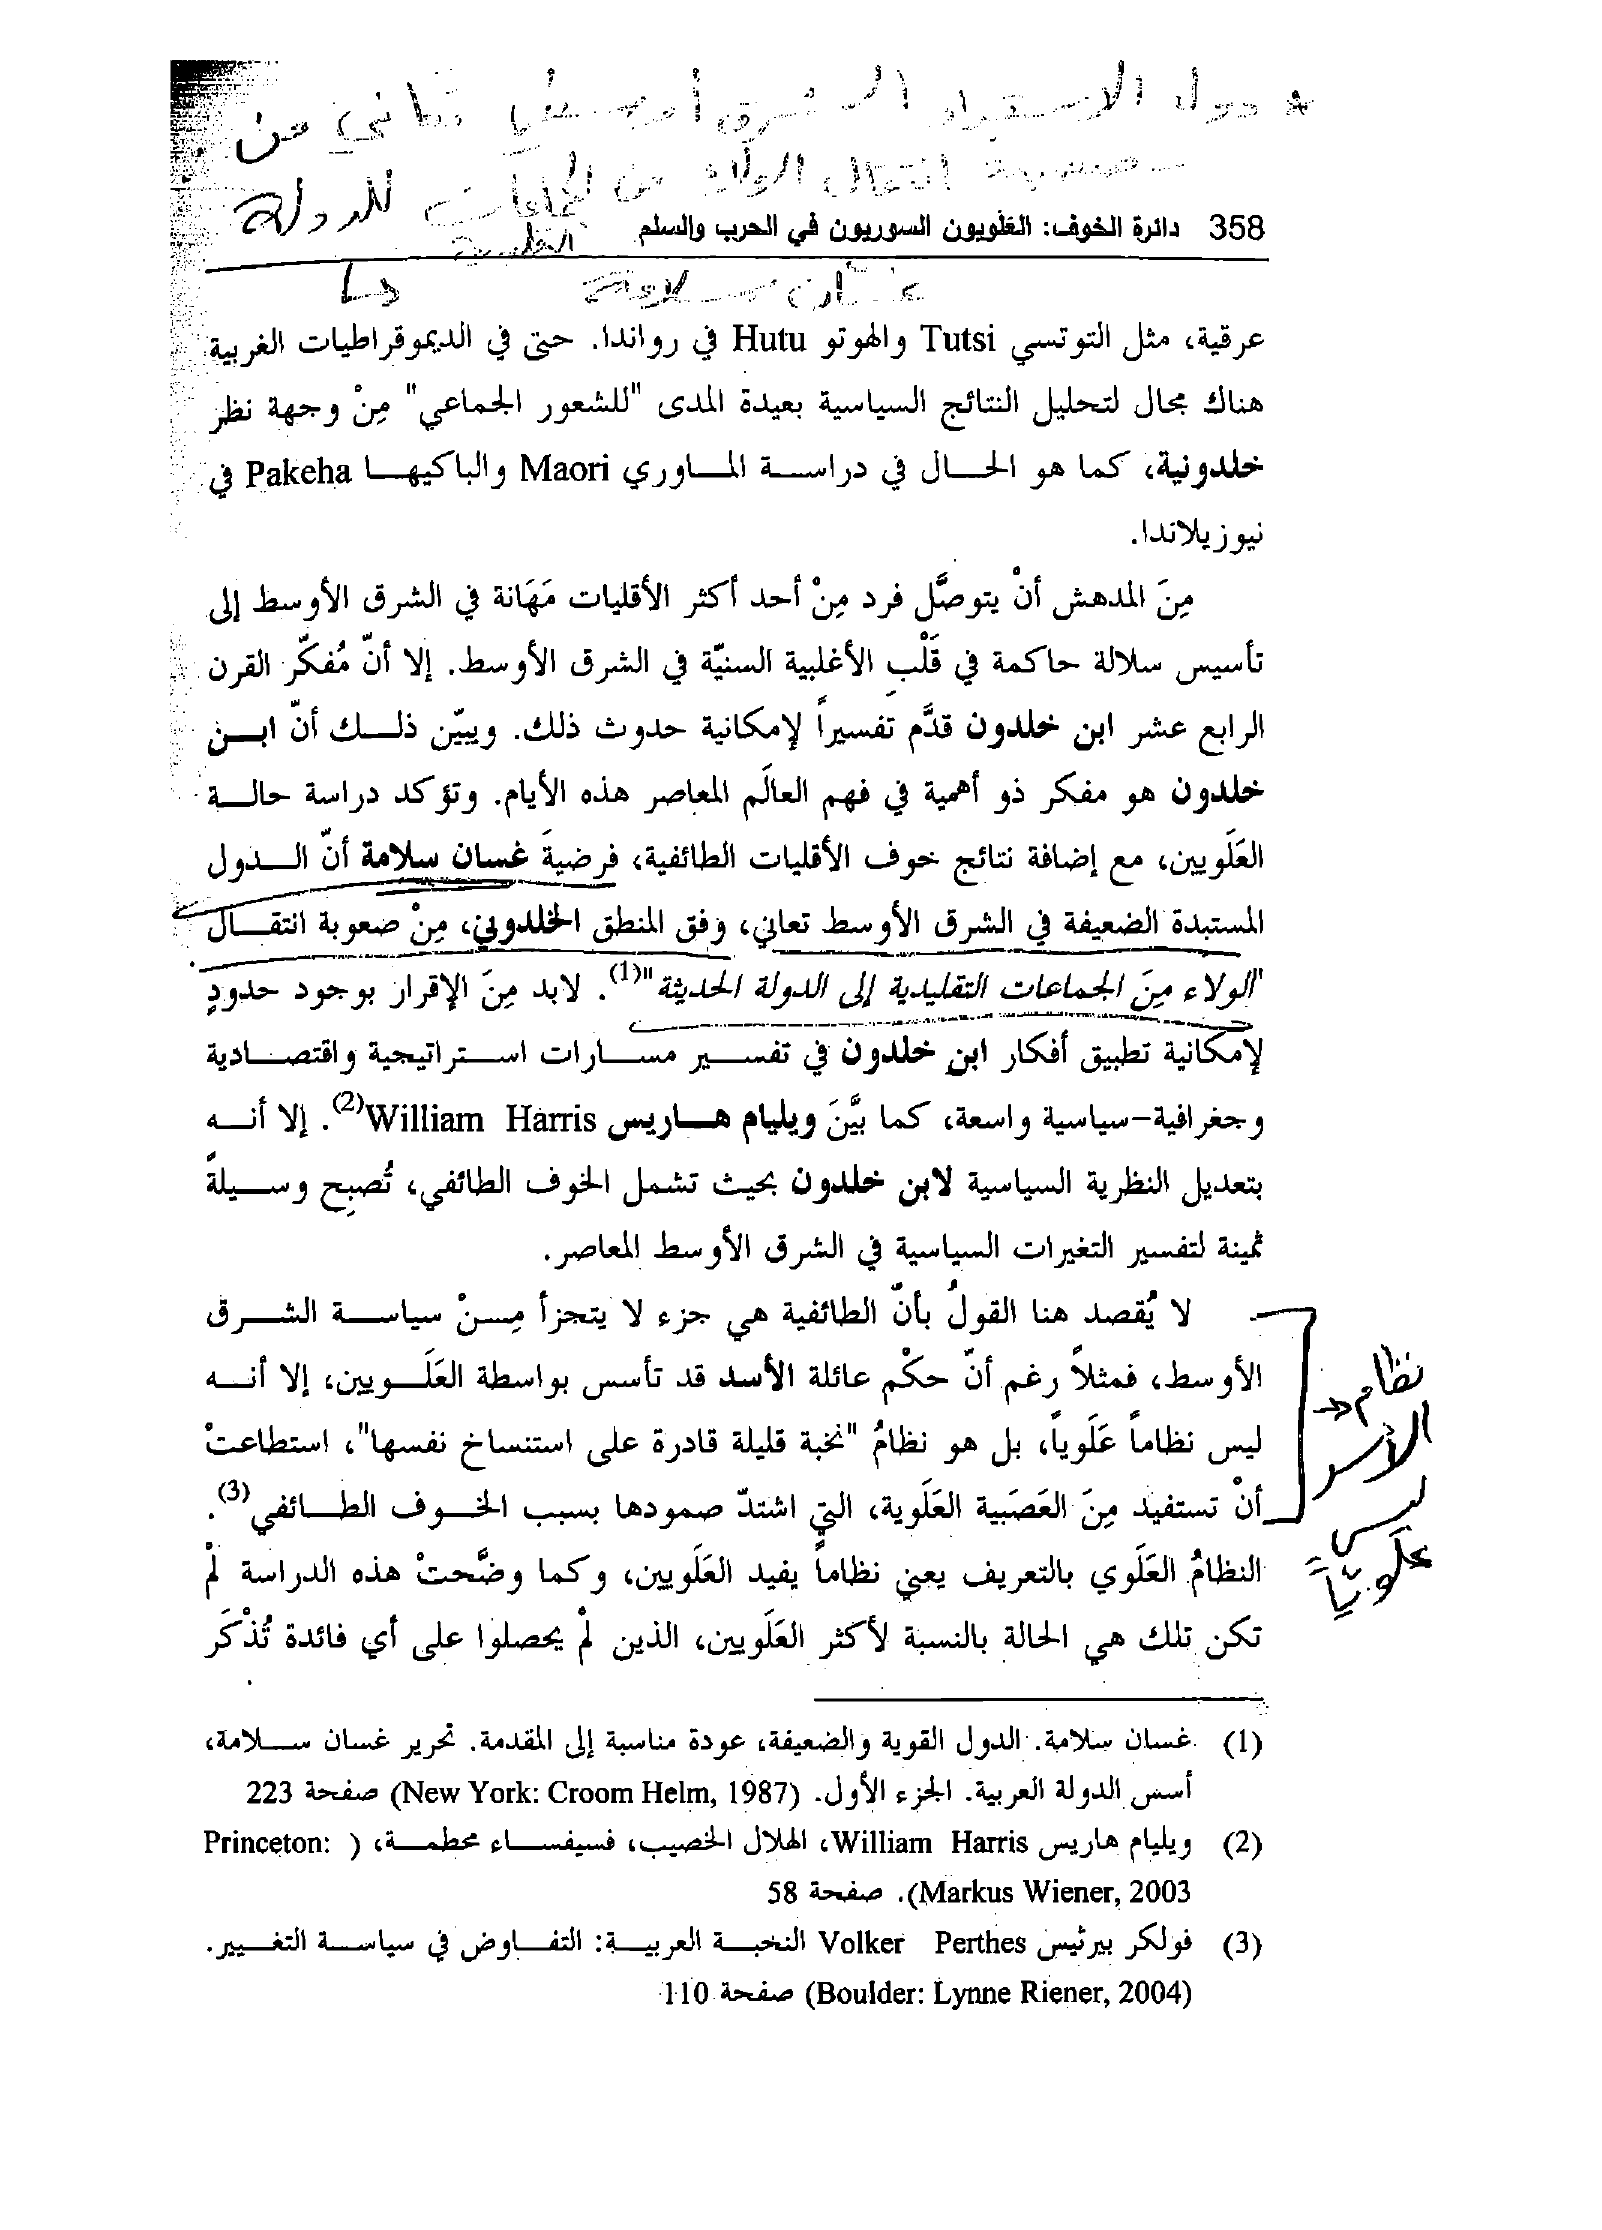 * دول الاستبداد الشرق أوسطي تعاني من
صعوبة انتقال الولاء من الجماعات للدولة
التقليدية
358 دائرة الخوف: العَلَويون السوريون في الحرب والسلم
غسان سلامة
عرقية، مثل التوتسي Tutsi والهوتو Hutu في رواندا. حتى في الديموقراطيات الغربية
هناك مجال لتحليل النتائج السياسية بعيدة المدى "للشعور الجماعي" مِنْ وجهة نظر
خلدونية، كما هو الحـــال في دراســـة المـــاوري Maori والباكيهـــا Pakeha في
نيوزيلاندا.
مِنَ المدهش أنْ يتوصَّل فرد مِنْ أحد أكثر الأقليات مَهَانة في الشرق الأوسط إلى
تأسيس سلالة حاكمة في قَلْب الأغلبية السنيّة في الشرق الأوسط. إلا أنّ مُفكّر القرن
الرابع عشر ابن خلدون قدَّم تفسيراً لإمكانية حدوث ذلك. ويبيّن ذلـــك أنّ ابـــن
خلدون هو مفكر ذو أهمية في فهم العالَم المعاصر هذه الأيام. وتؤكد دراسة حالـــة
العَلَويين، مع إضافة نتائج خوف الأقليات الطائفية، فرضيةَ غسان سلامة أنّ الـــدول
المستبدة الضعيفة في الشرق الأوسط تعاني، وفق المنطق الخلدوني، مِنْ صعوبة انتقـــال
"الولاء مِنَ الجماعات التقليدية إلى الدولة الحديثة"(1). لابد مِنَ الإقرار بوجود حدودٍ
لإمكانية تطبيق أفكار ابن خلدون في تفســـير مســـارات اســـتراتيجية واقتصـــادية
وجغرافية-سياسية واسعة، كما بيَّنَ ويليام هـــاريس William Harris(2). إلا أنـــه
بتعديل النظرية السياسية لابن خلدون بحيث تشمل الخوف الطائفي، تُصبِح وســـيلةً
ثمينة لتفسير التغيرات السياسية في الشرق الأوسط المعاصر.
لا يُقصد هنا القولُ بأنّ الطائفية هي جزء لا يتجزأ مِـــنْ سياســـة الشـــرق
الأوسط، فمثلاً رغم أنّ حكْم عائلة الأسد قد تأسس بواسطة العَلَـــويين، إلا أنـــه
ليس نظاماً عَلَوياً، بل هو نظامُ "نخبة قليلة قادرة على استنساخ نفسها"، استطاعتْ
أنْ تستفيد مِنَ العَصَبية العَلَوية، التي اشتدّ صمودها بسبب الخـــوف الطـــائفي(3).
النظامُ العَلَوي بالتعريف يعني نظاماً يفيد العَلَويين، وكما وضَّحتْ هذه الدراسة لمْ
تكن تلك هي الحالة بالنسبة لأكثر العَلَويين، الذين لمْ يحصلوا على أي فائدة تُذْكَر
نظام
الأسد
ليس
علوياً
(1) غسان سلامة. الدول القوية والضعيفة، عودة مناسبة إلى المقدمة. تحرير غسان ســـلامة،
أسس الدولة العربية. الجزء الأول. (New York: Croom Helm, 1987) صفحة 223
(2) ويليام هاريس William Harris، الهلال الخصيب، فسيفســـاء محطمـــة، ( Princeton:
Markus Wiener, 2003). صفحة 58
(3) فولكر بيرثيس Volker Perthes النخبـــة العربيـــة: التفـــاوض في سياســـة التغـــيير.
(Boulder: Lynne Riener, 2004) صفحة 110